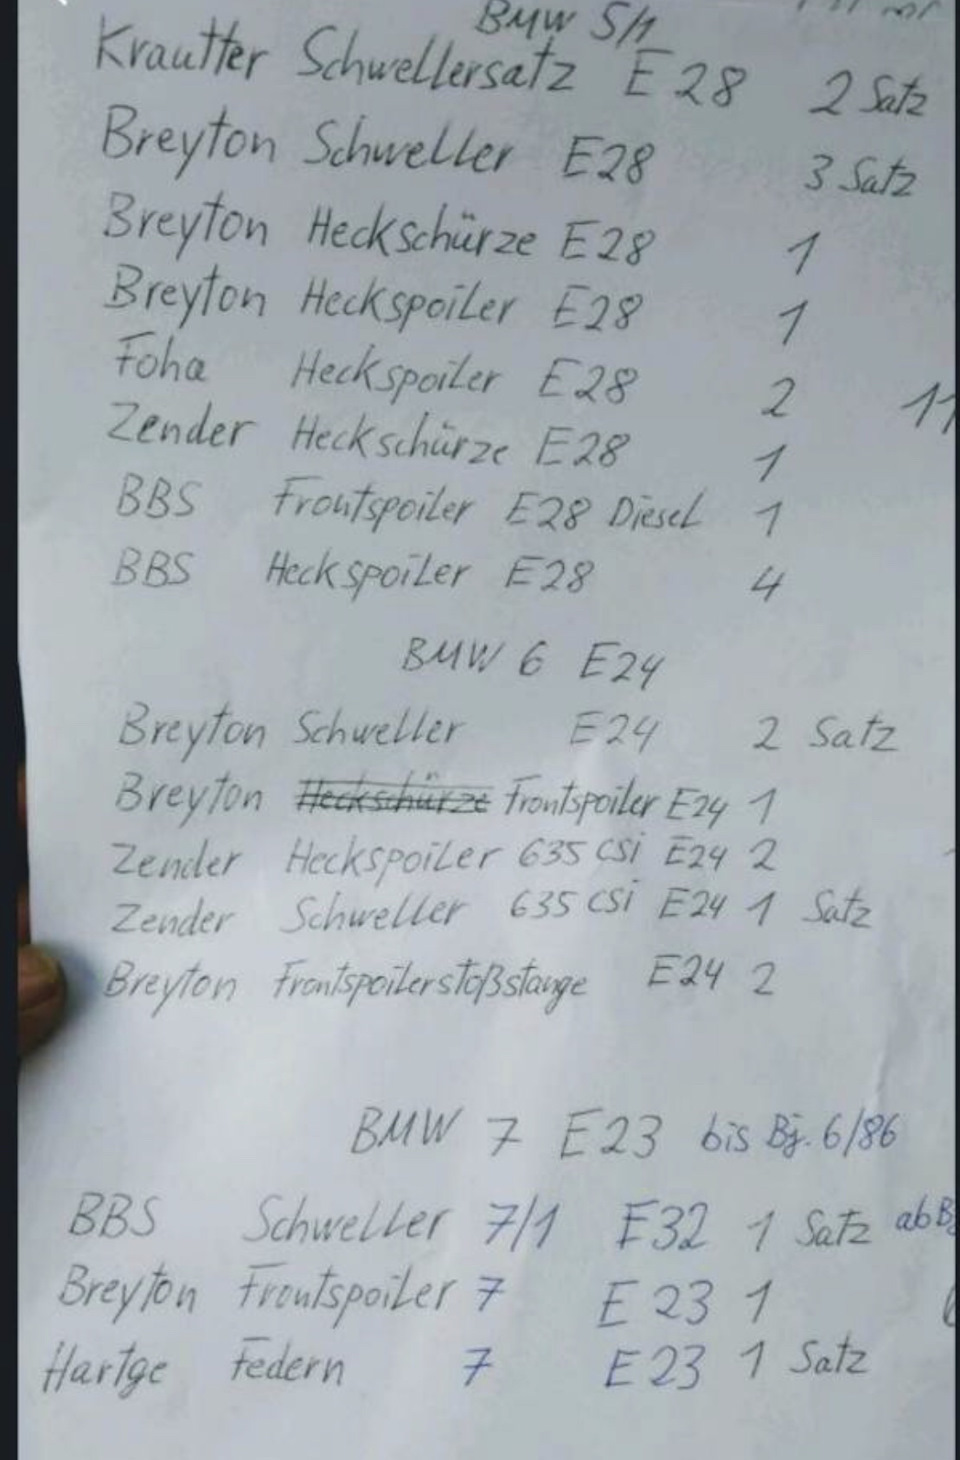 BMW 5/1
Krautter Schwellersatz E28 2 Satz
Breyton Schweller E28 3 Satz
Breyton Heckschürze E28 1
Breyton Heckspoiler E28 1
Foha Heckspoiler E28 2 11
Zender Heckschürze E28 1
BBS Frontspoiler E28 Diesel 1
BBS Heckspoiler E28 4
BMW 6 E24
Breyton Schweller E24 2 Satz
Breyton Heckschürze Frontspoiler E24 1
Zender Heckspoiler 635 CSi E24 2
Zender Schweller 635 CSi E24 1 Satz
Breyton Frontspoilerstoßstange E24 2
BMW 7 E23 bis Bj. 6/86
BBS Schweller 7/1 E32 1 Satz ab B
Breyton Frontspoiler 7 E23 1
Hartge Federn 7 E23 1 Satz